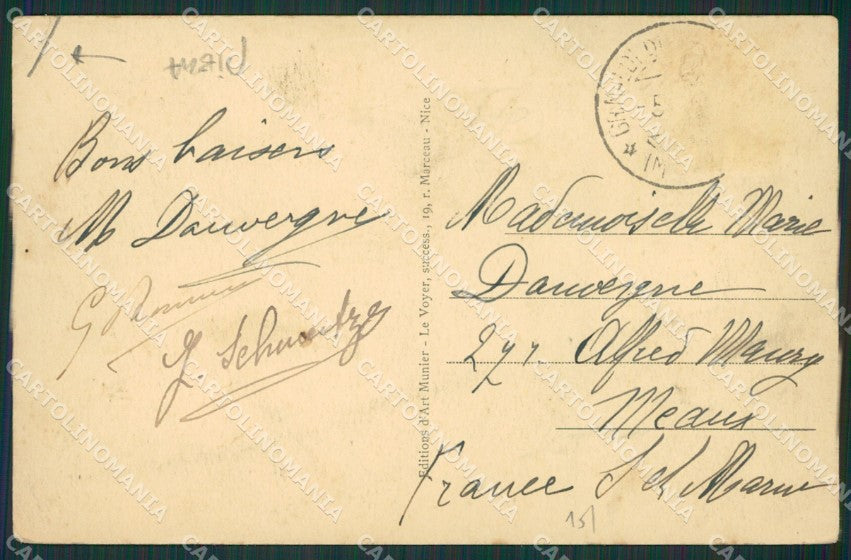 Bons baisers
M Dauvergne
J. Schwartz
Editions d'Art Munier - Le Voyer, success., 19, r. Marceau - Nice
Mademoiselle Marie
Dauvergne
27 r. Alfred Maury
Meaux
France S et Marne
151
CARTOLINOMANIA